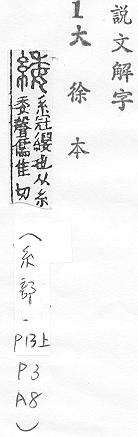 說文解字
1大徐本
緌 系冠纓也从糸
委聲儒隹切
(糸部-P13上P3A8)